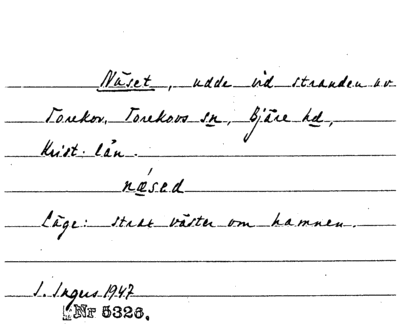 Näset, udde vid stranden av
Torekov, Torekovs sn, Bjäre hd,
Krist. län.
næ´sed
Läge: strax väster om hamnen.
I. Ingers 1947
Nr 5326.